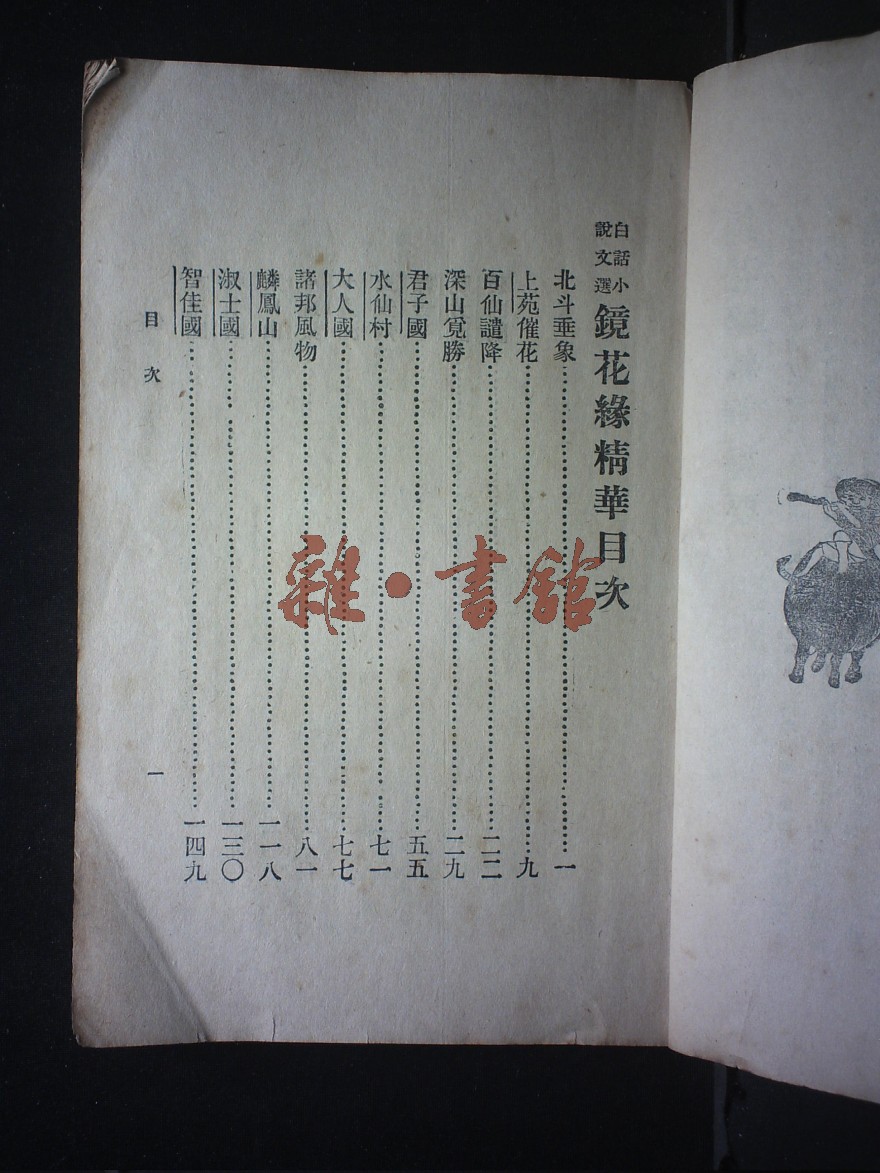 白話小說文選 鏡花緣精華目次
北斗垂象……一
上苑催花……九
百仙譴降……二二
深山覓勝……二九
君子國……五五
水仙村……七一
大人國……七七
諸邦風物……八一
麟鳳山……一一八
淑士國……一三〇
智佳國……一四九
目次
一
雜·書館